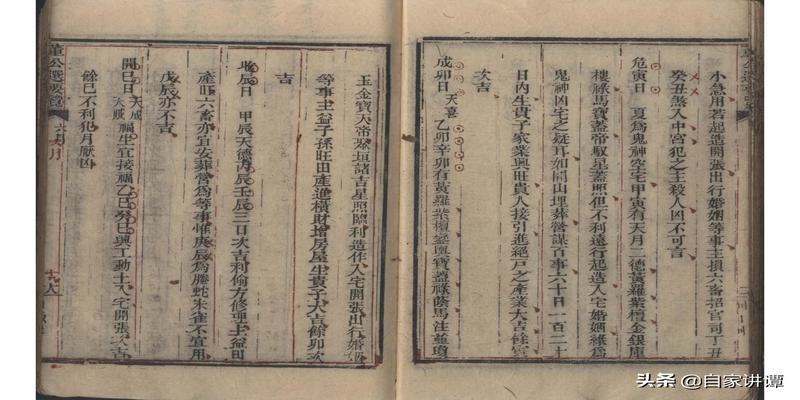 董公選要覽
小急用若起造開張出行婚姻等事主損六畜招官司丁丑
癸丑煞入中宮犯之主殺人凶不可言
危寅日 夏為鬼神空宅甲寅有天月二德黃羅紫檀金銀庫
樓祿馬寶蓋帝馭星蓋照但不利遠行起造入宅婚姻緣為
鬼神凶宅之疑耳如開山埋葬營謀百事六十日一百二十
日內生貴子家業興旺貴人接引進絕戶之產業大吉餘寅
次吉
成卯日 天喜 乙卯辛卯有黃羅紫檀鑾輿寶蓋祿蔭馬注並瓊
玉金寶天帝聚垣諸吉星照臨利造作入宅開張出行婚姻
等事主益子孫旺田產進橫財增房屋生貴子大吉餘卯次
吉
收辰日 甲辰天德丙辰壬辰三日次吉利偷方修理主益田
產旺六畜亦宜安葬營為等事惟庚辰為騰蛇朱雀不宜用
戊辰亦不吉
開巳日 天成 天賊 福生宜接福乙巳癸巳興工動土入宅開張次吉
餘巳不利犯月厭凶
董公選要覽
六月
頭条 @自家讲谭